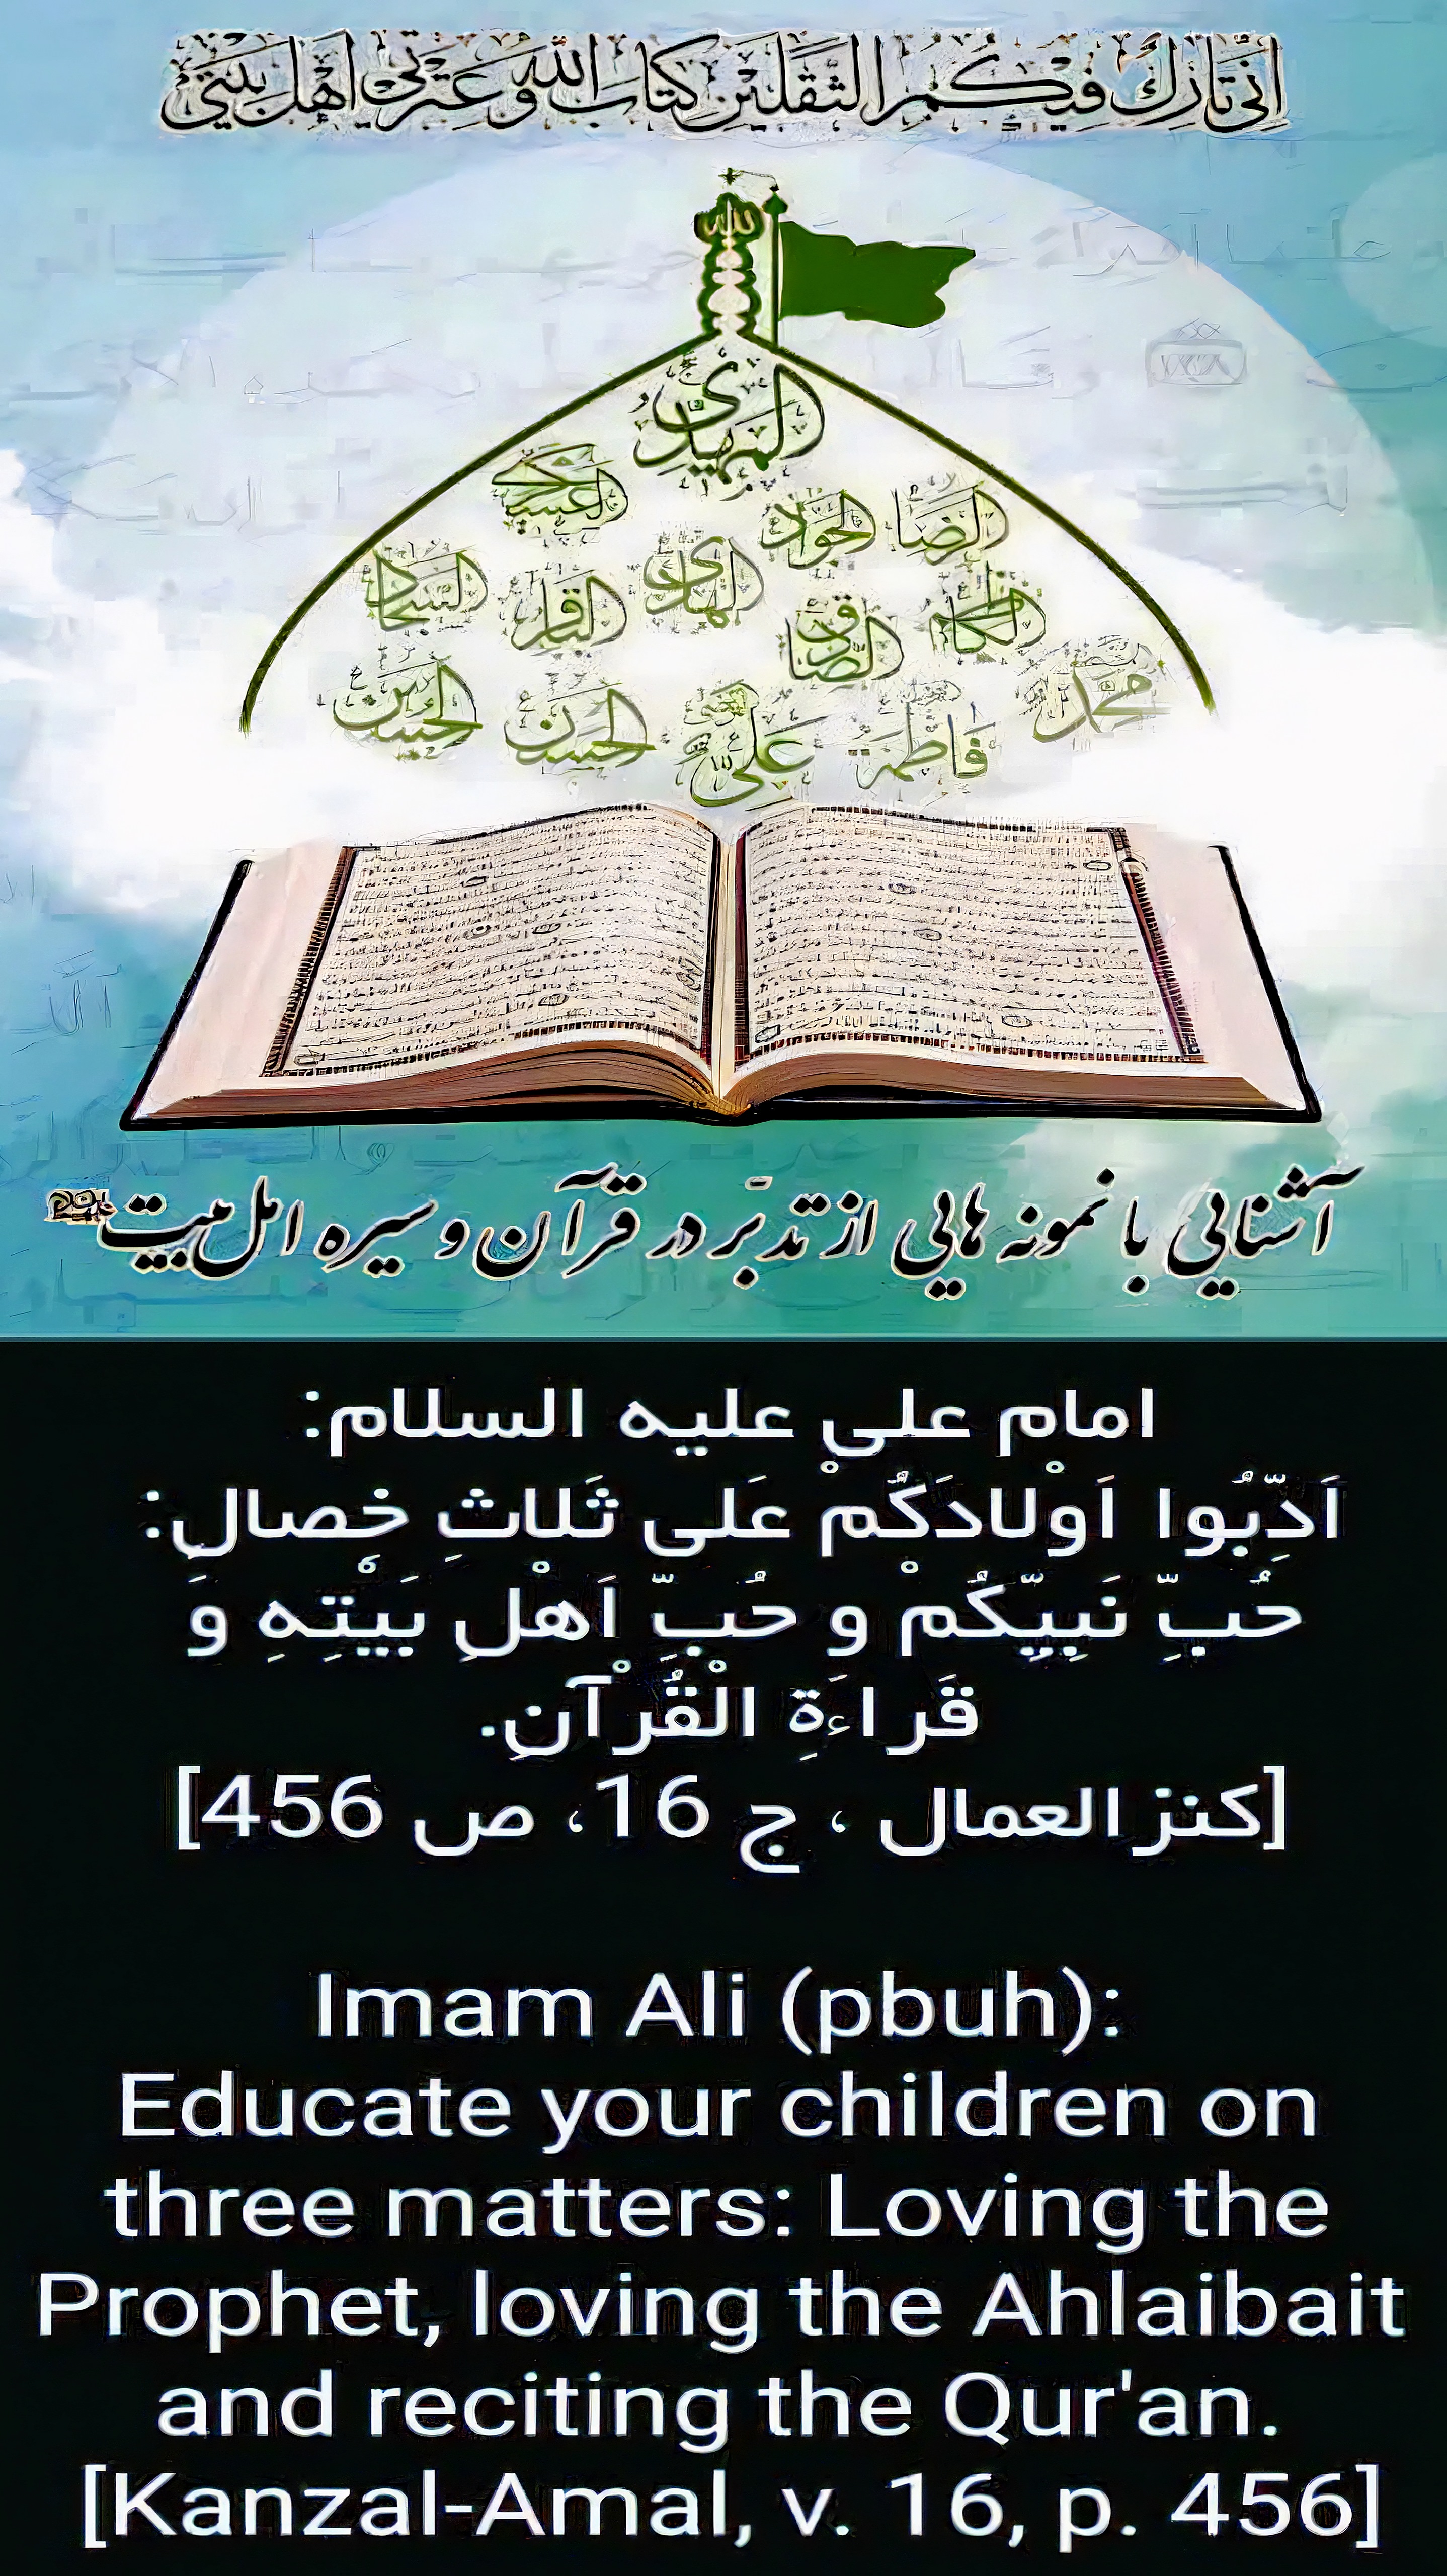 اني تارك فيكم الثقلين كتاب الله وعترتي اهل بيتي
الله
المهدي
العسكري
الجواد الرضا
السجاد الباقر الهادي
الصادق الكاظم
محمد
فاطمة علي الحسن الحسين
آشنایی با نمونه هایی از تدبّر در قرآن و سیره اهل بیت
امام علی علیه السلام:
اَدِّبُوا اَوْلادَكُمْ عَلی ثَلاثِ خِصال:
حُبِّ نَبِيِّكُمْ و حُبِّ اَهْلِ بَيْتِهِ وَ
قَراءَةِ الْقُرْآنِ.
[کنزالعمال ، ج 16، ص 456]
Imam Ali (pbuh):
Educate your children on
three matters: Loving the
Prophet, loving the Ahlaibait
and reciting the Qur'an.
[Kanzal-Amal, v. 16, p. 456]